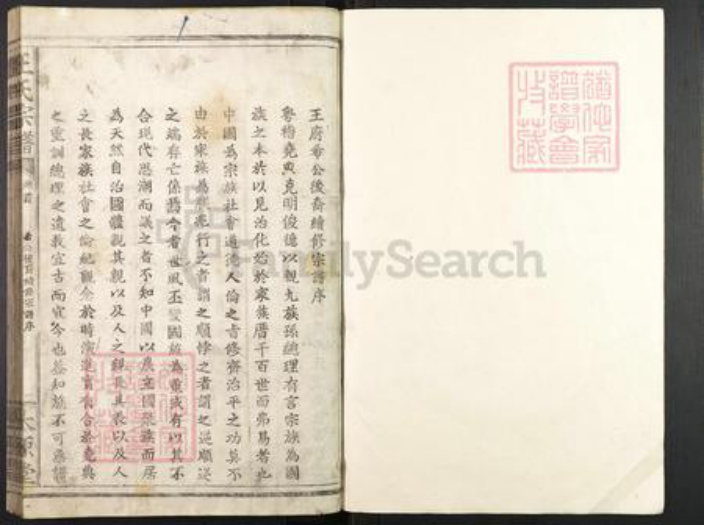 王府希公後裔續修宗譜序
粵稽堯典克明俊德以親九族孫總理有言宗族為國
族之本於以見治化始於家族厝千百世而弗易者也
中國為宗族社會道德人倫之睿修齊治平之功莫不
由於宗族為 行之者謂之順悖之者謂之逆順逆
之端存亡係焉今者世風丕變國族為重或有以其不
合現代思潮而議之者不知中國以農立國聚族而居
為天然自治團體親其親以及人之親長其長以及人
之長家族社會之倫紀觀念於時演進實有合於堯典
之重訓總理之遺教宜古而宜今也益知族不可無譜
王氏宗譜
卷首
續修宗譜序
一本源堂
FamilySearch
譜學會
收藏